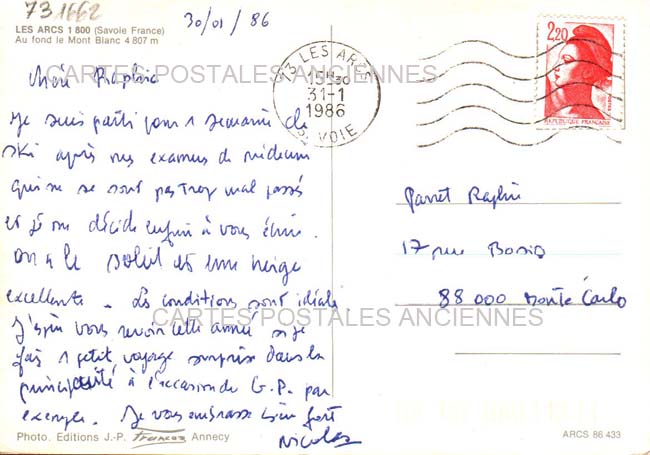 731662
30/01/86
LES ARCS 1 800 (Savoie France)
Au fond le Mont Blanc 4 807 m
2,20
POSTES
REPUBLIQUE FRANÇAISE
73 LES ARCS
15H30
31-1
1986
SAVOIE
CARTES POSTALES ANCIENNES
Je suis parti pour 1 semaine de
ski après mes examens de médecine
qui ne se sont pas trop mal passés
et je me décide enfin à vous écrire.
On a le soleil et une neige
excellente. Les conditions sont idéales
J'espère vous revoir cette année si je
fais 1 petit voyage surprise dans la
principauté à l'occasion du G.P. par
exemple. Je vous embrasse bien fort
Nicolas
17 rue
98 000 Monte Carlo
CARTES POSTALES ANCIENNES
Photo. Editions J.-P. Annecy
ARCS 86 433